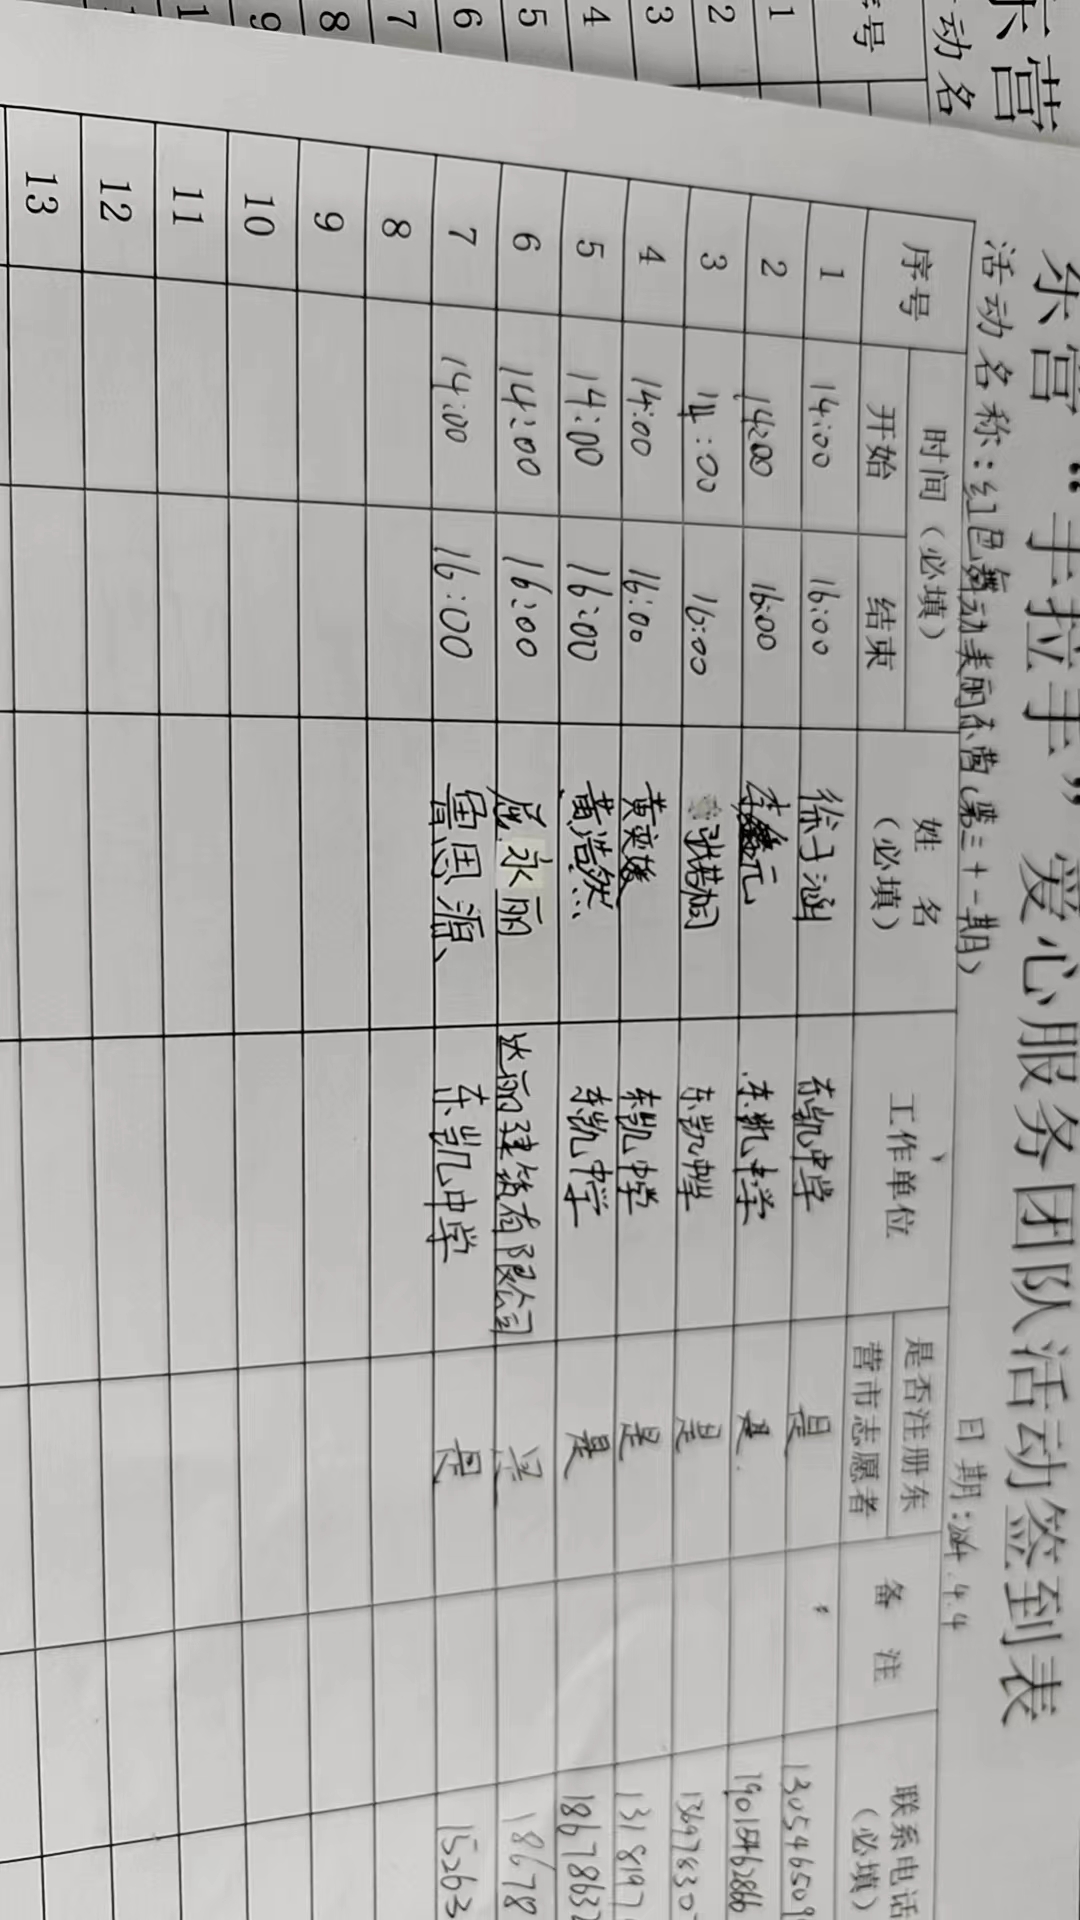 东营“手拉手”爱心服务团队活动签到表
活动名称：红色舞动美丽东营（第三十一期） 日期：24.4.4
序号 时间（必填） 姓名（必填） 工作单位 是否注册东营市志愿者 备注 联系电话（必填）
开始 结束
1 14:00 16:00 徐子涵 东凯中学 是 130546509
2 14:00 16:00 李鑫元 东凯中学 是 19015462866
3 14:00 16:00 东凯中学 是 13697830
4 14:00 16:00 黄奕媛 东凯中学 是 1318197
5 14:00 16:00 黄浩然 东凯中学 是 18678632
6 14:00 16:00 屈永丽 达丽建筑有限公司 是 18678
7 14:00 16:00 思源 东凯中学 是 15263
8
9
10
11
12
13
东营
动名
序号
1
2
3
4
5
6
7
8
9
1